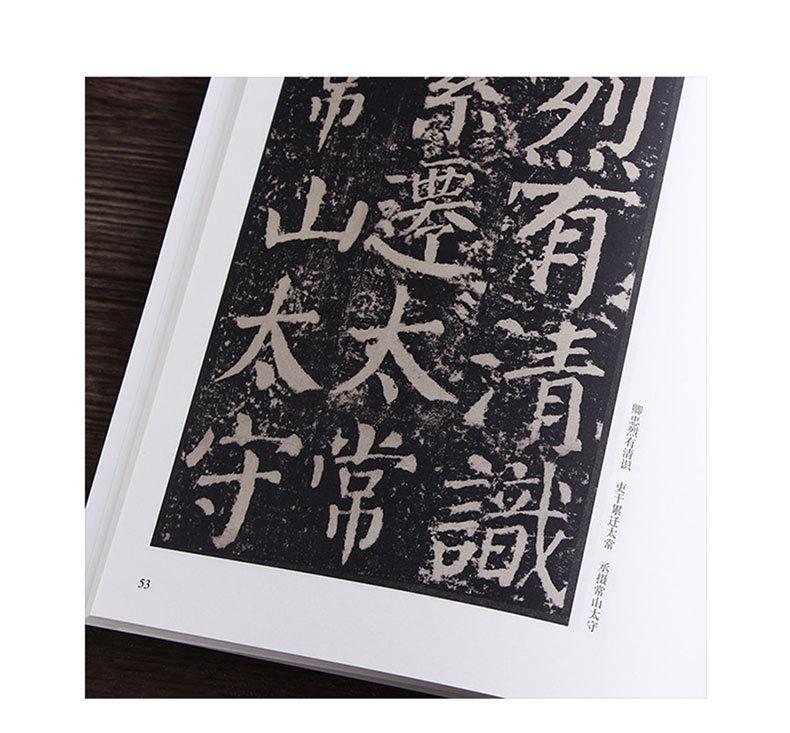 烈有清識
累遷太常
常山太守
卿忠烈有清识 吏干累迁太常 丞摄常山太守
53